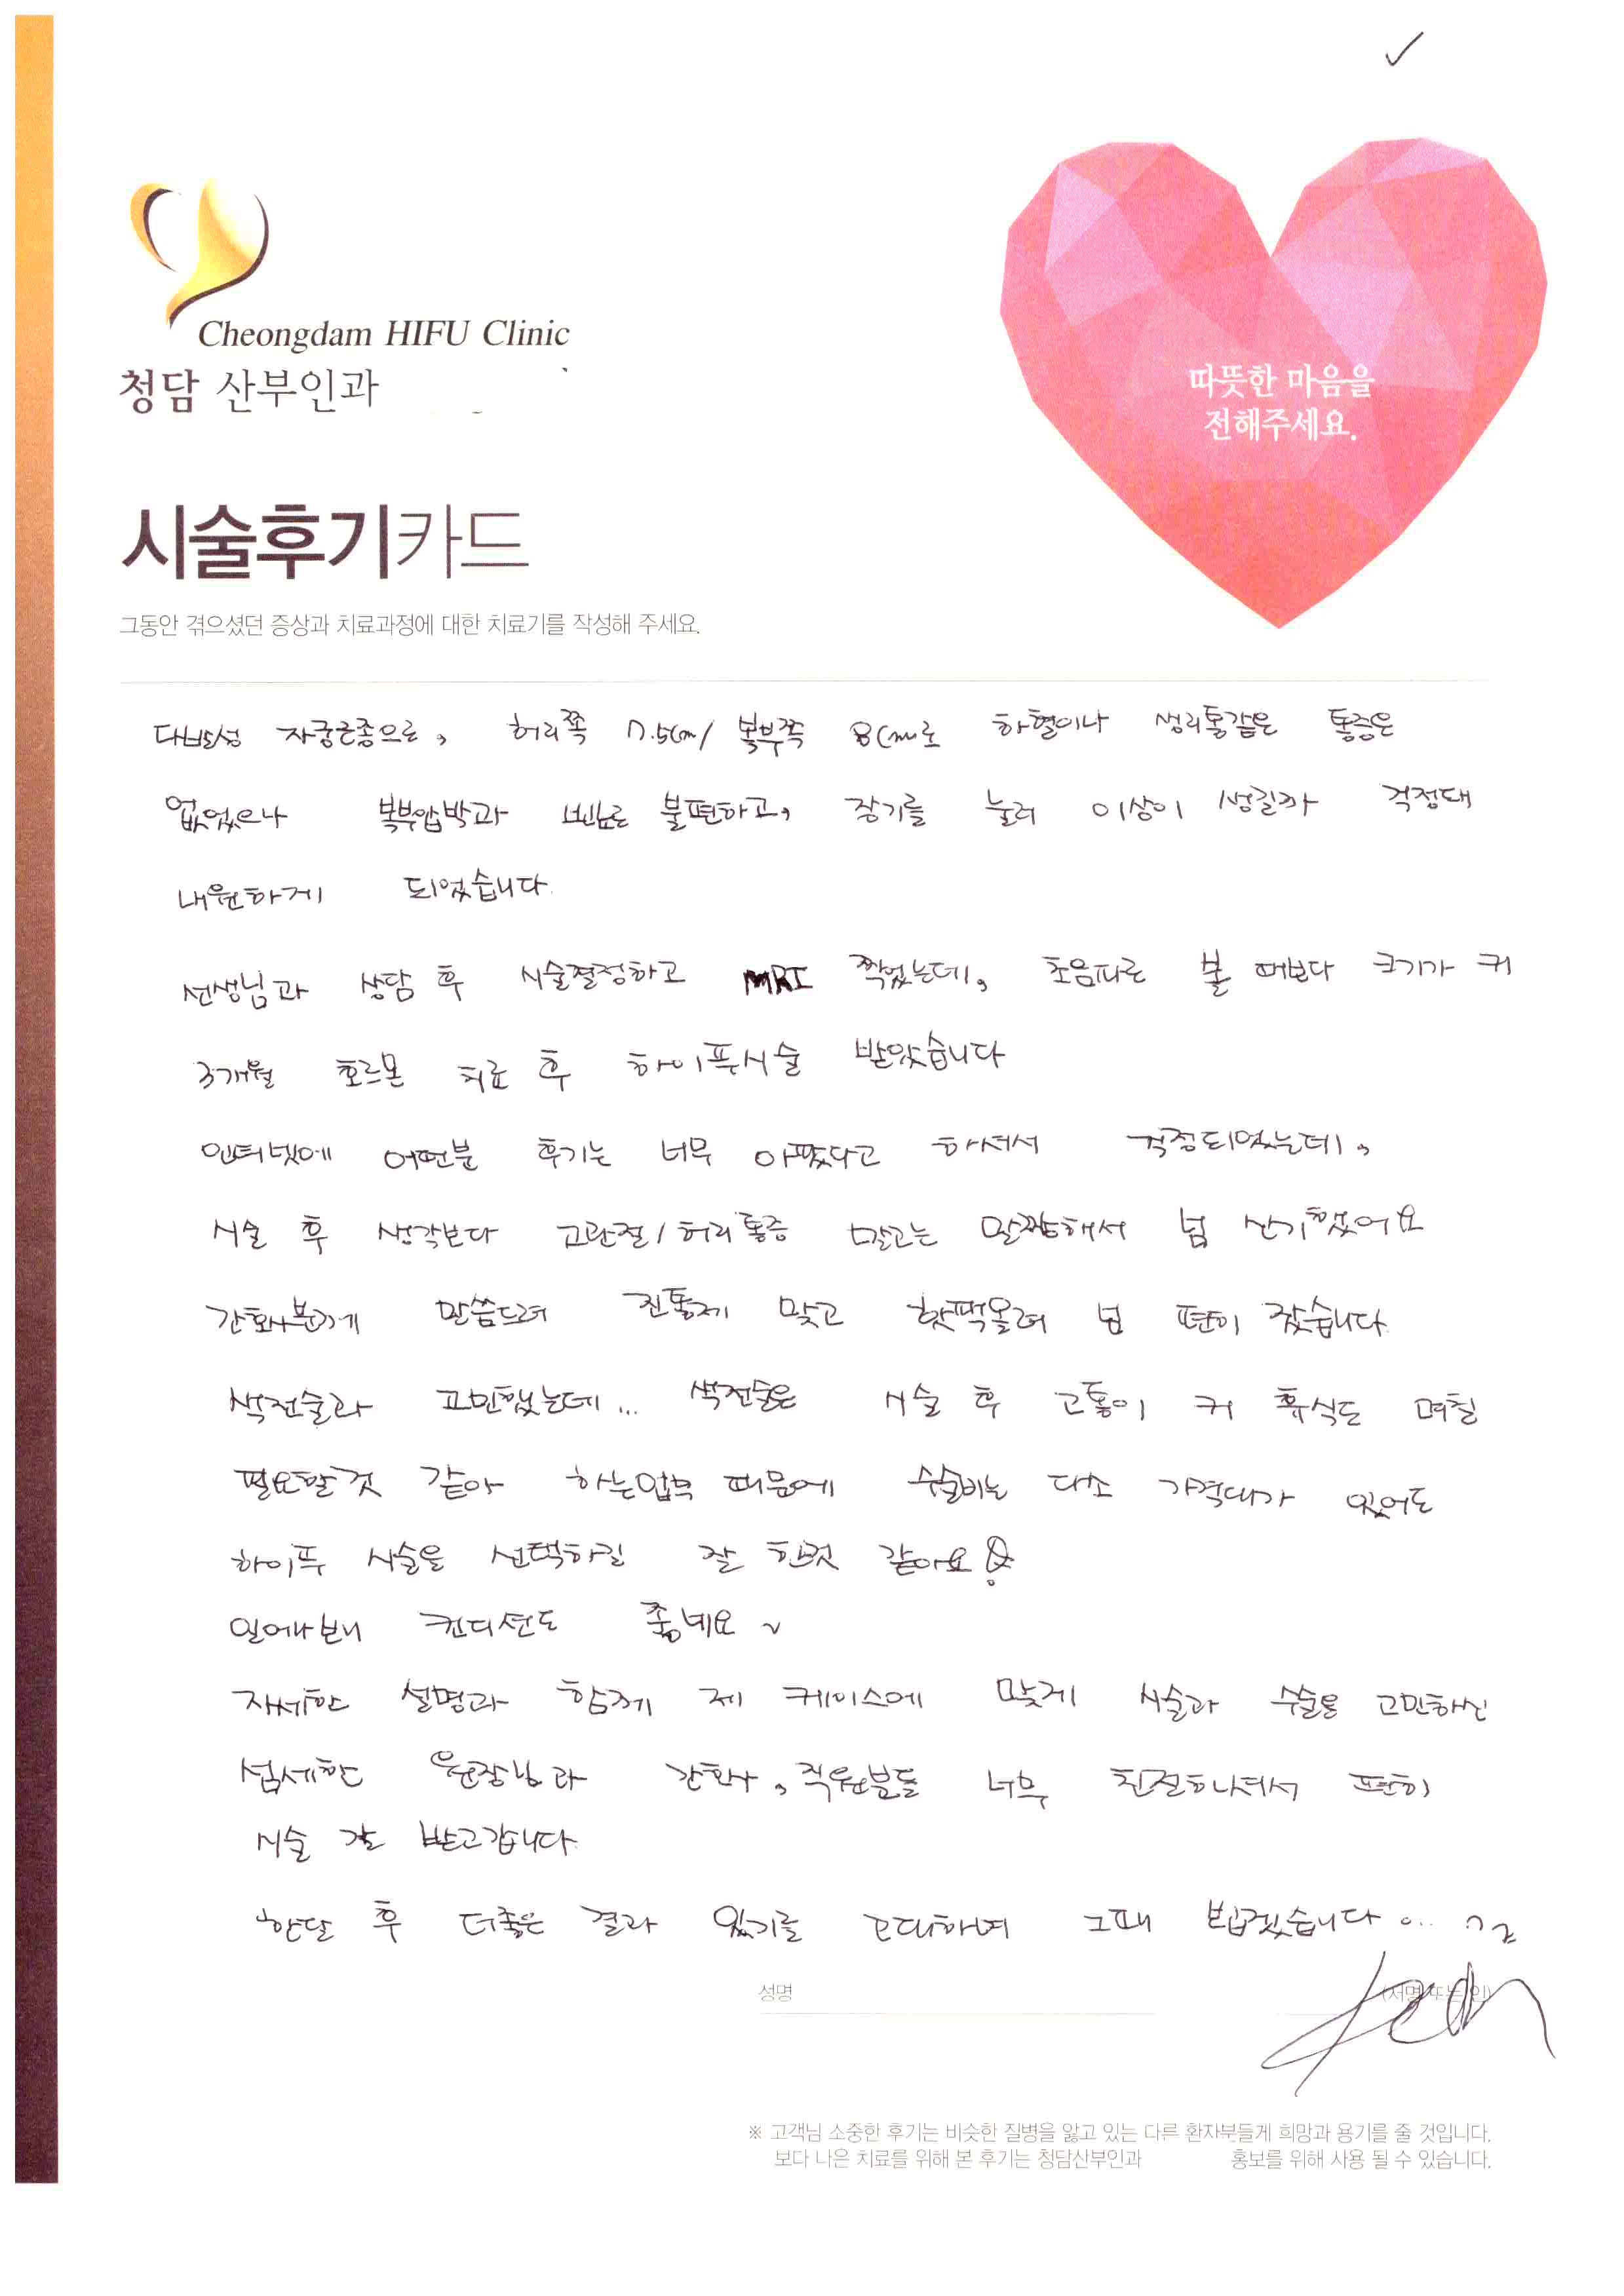 Cheongdam HIFU Clinic
청담 산부인과
따뜻한 마음을
전해주세요.
시술후기카드
그동안 겪으셨던 증상과 치료과정에 대한 치료기를 작성해 주세요.
다발성 자궁근종으로, 허리쪽 7.5cm/ 복부쪽 8cm로 하혈이나 생리통같은 통증은
없었으나 복부압박과 빈뇨로 불편하고, 장기를 눌러 이상이 생길까 걱정돼
내원하게 되었습니다.
선생님과 상담 후 시술결정하고 MRI 찍었는데, 초음파로 볼 때보다 크기가 커
3개월 호르몬 치료 후 하이푸시술 받았습니다
인터넷에 어떤분 후기는 너무 아팠다고 하셔서 걱정되었는데,
시술 후 생각보다 고관절/허리통증 말고는 말짱해서 넘 신기했어요
간호사분께 말씀드려 진통제 맞고 핫팩올려 넘 편히 잤습니다.
색전술과 고민했는데... 색전술은 시술 후 고통이 커 휴식도 며칠
필요할것 같아 하는업무 때문에 수술비는 다소 가격대가 있어도
하이푸 시술을 선택하길 잘 한것 같아요!
일어나보니 컨디션도 좋네요~
자세한 설명과 함께 제 케이스에 맞게 시술과 수술을 고민해주신
섬세한 원장님과 간호사, 직원분들 너무 친절하셔서 편히
시술 잘 받고갑니다.
한달 후 더좋은 결과 있기를 고대하며 그때 뵙겠습니다...
성명
(서명 또는 인)
※ 고객님 소중한 후기는 비슷한 질병을 앓고 있는 다른 환자부들게 희망과 용기를 줄 것입니다.
보다 나은 치료를 위해 본 후기는 청담산부인과 홍보를 위해 사용 될 수 있습니다.